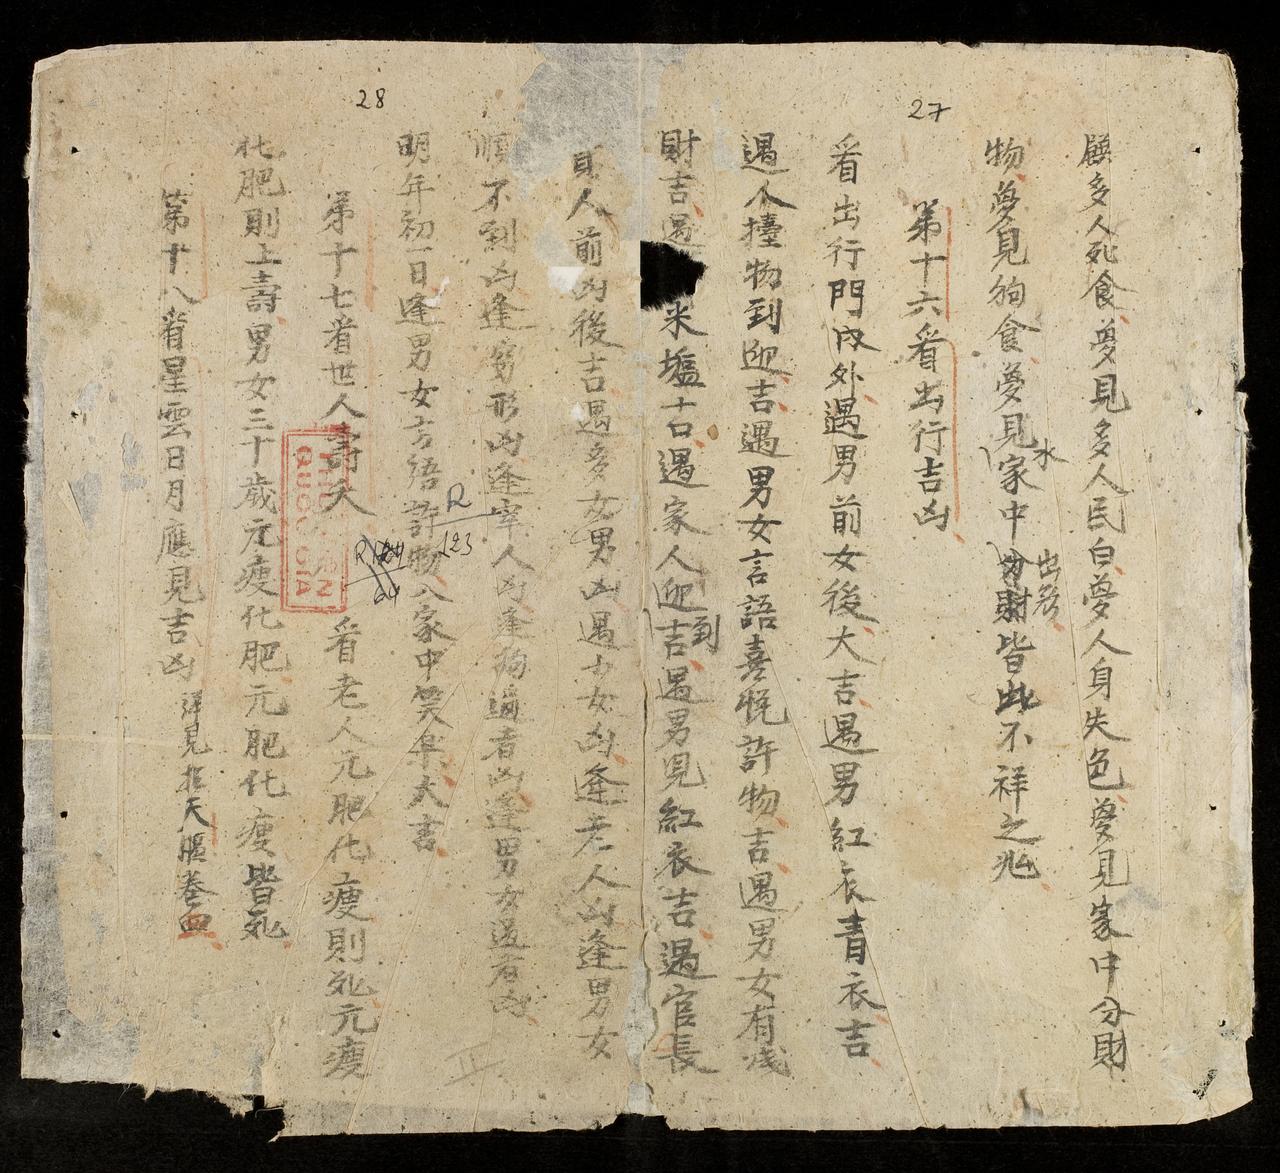 27
多人死食夢見多人民白夢人身失色夢見家中分財
物夢見狗食夢見水家中出外皆此不祥之兆
第十六看出行吉凶
看出行門內外遇男前女後大吉遇男紅衣青衣吉
遇人擡物到迎吉遇男女言語喜悅許物吉遇男女有
財吉遇米塩吉遇家人迎到吉遇男見紅衣吉遇官長
28
人前凶後吉遇多女男凶遇少女凶逢老人凶逢男女
不到凶逢形凶逢宰人凶逢狗過者凶逢男女過者凶
明年初一日逢男女言語許物入家中笑大吉
第十七看世人壽夭
看老人元肥化瘦則死元瘦
化肥則上壽男女三十歲元瘦化肥元肥化瘦皆死
第十八看星雲日月應見吉凶
詳見天
QUOC GIA
R
123
64